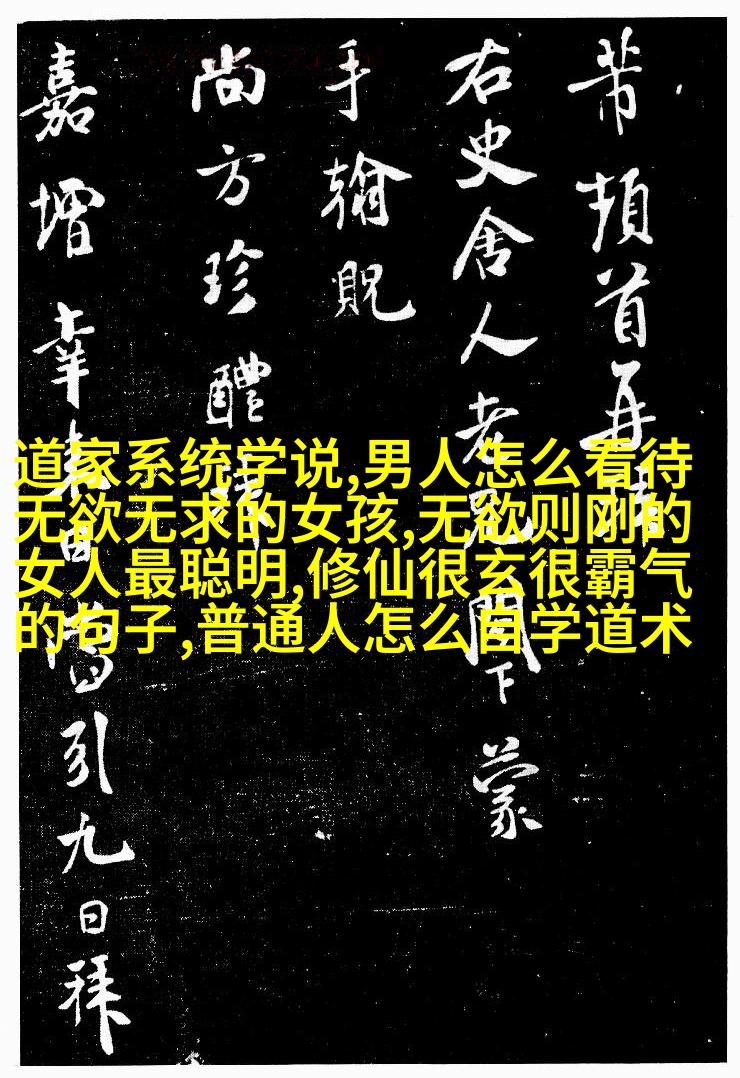 芾頓首再拜
右史舍人老兄閣下蒙
手翰貺
尚方珍醴
嘉增幸引九日拜
道家系统学说,男人怎么看待
无欲无求的女孩,无欲则刚的
女人最聪明,修仙很玄很霸气
的句子,普通人怎么自学道术